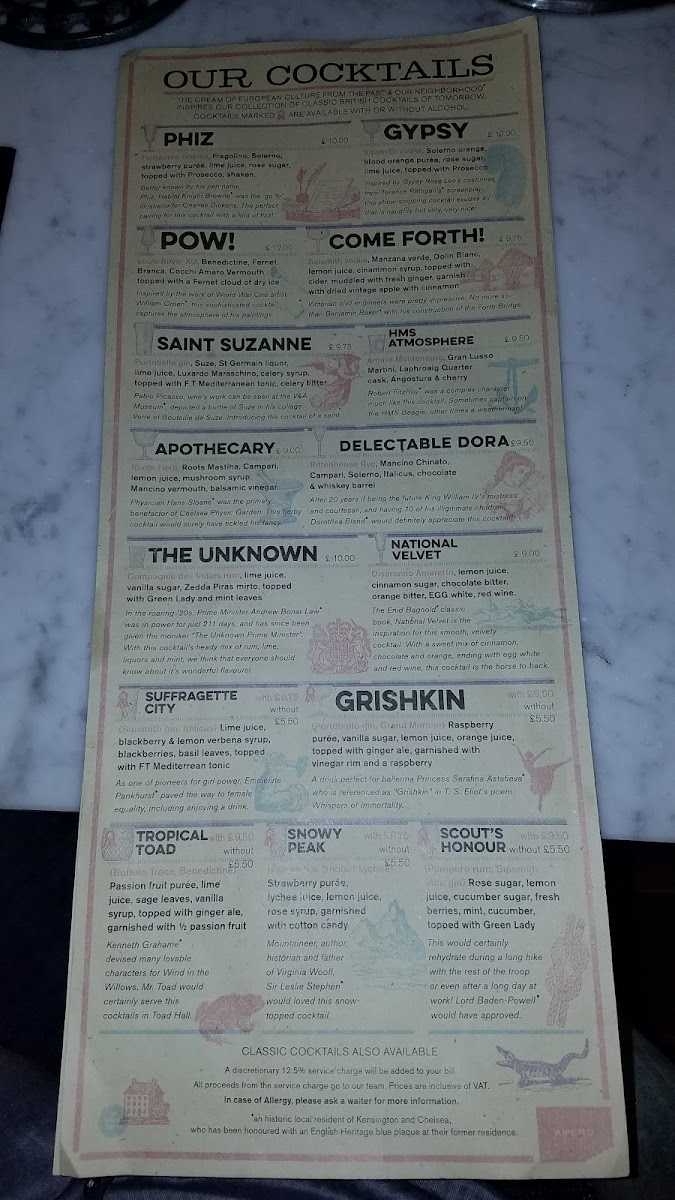 OUR COCKTAILS
THE CREAM OF EUROPEAN CULTURE FROM THE PAST & OUR NEIGHBORHOOD*
INSPIRES OUR COLLECTION OF CLASSIC BRITISH COCKTAILS OF TOMORROW.
COCKTAILS MARKED ARE AVAILABLE WITH OR WITHOUT ALCOHOL.
PHIZ £ 10.00
Fragolino, Solerno,
strawberry purée, lime juice, rose sugar,
topped with Prosecco, shaken.
Better known by his pen name
Phiz, Hablot Knight Browne* was the 'go to'
illustrator for Charles Dickens. The perfect
pairing for this cocktail with a hint of fizz!
GYPSY £ 10.00
Sipsmith vodka, Solerno orange,
blood orange purée, rose sugar,
lime juice, topped with Prosecco
Inspired by Gypsy Rose Lee's costumes
from Terence Rattigan's* screenplay,
this show-stopping cocktail exudes all
that is naughty but very, very nice!
POW! £ 12.00
Louis Royer XO, Benedictine, Fernet
Branca, Cocchi Amaro Vermouth
topped with a Fernet cloud of dry ice
Inspired by the work of World War One artist
William Orpen*, this sophisticated cocktail
captures the atmosphere of his paintings.
COME FORTH! £ 9.75
Sipsmith vodka, Manzana verde, Dolin Blanc,
lemon juice, cinammon syrup, topped with
cider, muddled with fresh ginger, garnish
with dried vintage apple with cinnamon
Victorian civil engineers were pretty impressive. No more so
than Benjamin Baker* with his construction of the Forth Bridge.
SAINT SUZANNE £ 9.75
Portobello gin, Suze, St Germain liquor,
lime juice, Luxardo Maraschino, celery syrup,
topped with FT Mediterranean tonic, celery bitter
Pablo Picasso, who's work can be seen at the V&A
Museum*, depicted a bottle of Suze in his college
Verre et Bouteille de Suze. Introducing the cocktail of a saint.
HMS
ATMOSPHERE £ 9.50
Amaro Montenegro, Gran Lusso
Martini, Laphroaig Quarter
cask, Angostura & cherry
Robert FitzRoy* was a complex character
much like this cocktail. Sometimes captain on
the HMS Beagle, other times a weatherman!
APOTHECARY £ 9.00
Roots Herb, Roots Mastiha, Campari,
lemon juice, mushroom syrup,
Mancino vermouth, balsamic vinegar
Physician Hans Sloane* was the primary
benefactor of Chelsea Physic Garden. This herby
cocktail would surely have tickled his fancy.
DELECTABLE DORA £9.50
Rittenhouse Rye, Mancino Chinato,
Campari, Solerno, Italicus, chocolate
& whiskey barrel
After 20 years if being the future King William IV's mistress
and courtesan, and having 10 of his illigitimate children,
Dorothea Bland* would definitely appreciate this cocktail.
THE UNKNOWN £ 10.00
Compagnie des Indies rum, lime juice,
vanilla sugar, Zedda Piras mirto, topped
with Green Lady and mint leaves
In the roaring '20s, Prime Minister Andrew Bonar Law*
was in power for just 211 days, and has since been
given the moniker "The Unknown Prime Minister".
With this cocktail's heady mix of rum, lime,
liquors and mint, we think that everyone should
know about it's wonderful flavours!
NATIONAL
VELVET £ 9.00
Disaronno Amaretto, lemon juice,
cinnamon sugar, chocolate bitter,
orange bitter, EGG white, red wine.
The Enid Bagnold* classic
book, National Velvet is the
inspiration for this smooth, velvety
cocktail. With a sweet mix of cinnamon,
chocolate and orange, ending with egg white
and red wine, this cocktail is the horse to back.
SUFFRAGETTE
CITY with £9.75
without
£5.50
(Sipsmith gin, Italicus) Lime juice,
blackberry & lemon verbena syrup,
blackberries, basil leaves, topped
with FT Mediterrean tonic
As one of pioneers for girl power, Emmeline
Pankhurst* paved the way to female
equality, including enjoying a drink.
GRISHKIN with £9.50
without
£5.50
(Portobello gin, Grand Marnier) Raspberry
purée, vanilla sugar, lemon juice, orange juice,
topped with ginger ale, garnished with
vinegar rim and a raspberry
A drink perfect for ballerina Princess Serafina Astafieva*
who is referenced as "Grishkin" in T. S. Eliot's poem
Whispers of Immortality.
TROPICAL
TOAD with £9.50
without
£5.50
(Buffalo Trace, Benedictine)
Passion fruit purée, lime
juice, sage leaves, vanilla
syrup, topped with ginger ale,
garnished with ½ passion fruit
Kenneth Grahame*
devised many lovable
characters for Wind in the
Willows. Mr. Toad would
certainly serve this
cocktails in Toad Hall.
SNOWY
PEAK with £9.75
without
£5.50
Strawberry purée,
lychee juice, lemon juice,
rose syrup, garnished
with cotton candy
Mountaineer, author,
historian and father
of Virginia Woolf,
Sir Leslie Stephen*
would loved this snow-
topped cocktail.
SCOUT'S
HONOUR with £9.50
without £5.50
(Pampero rum, Sipsmith
sloe gin) Rose sugar, lemon
juice, cucumber sugar, fresh
berries, mint, cucumber,
topped with Green Lady
This would certainly
rehydrate during a long hike
with the rest of the troop
or even after a long day at
work! Lord Baden-Powell*
would have approved.
CLASSIC COCKTAILS ALSO AVAILABLE
A discretionary 12.5% service charge will be added to your bill.
All proceeds from the service charge go to our team. Prices are inclusive of VAT.
In case of Allergy, please ask a waiter for more information.
*an historic local resident of Kensington and Chelsea,
who has been honoured with an English Heritage blue plaque at their former residence.